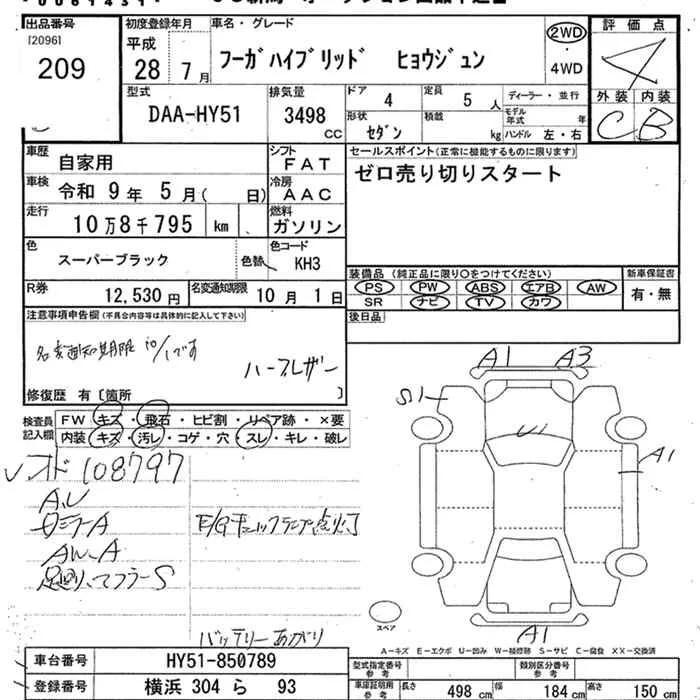 出品番号 初度登録年月 車名・グレード 評価点
[2096]
209
平成
28年 7月
フーガハイブリッド ヒョウジュン
2WD
・
4WD
4
型式 排気量 ドア 定員 ディーラー・並行 外装 内装
DAA-HY51 3498 cc 4 5人 モデル年式 年 C B
形状 セダン 積載 kg ハンドル 左・右
車歴 自家用 シフト FAT
セールスポイント(正常に機能するものに限ります)
ゼロ売り切りスタート
車検 令和 9年 5月( 日) 冷房 AAC
走行 10万8千795 km 燃料 ガソリン
色 スーパーブラック 色替 色コード KH3
装備品(純正品に限り○をつけてください) 新車保証書
PS PW ABS エアB AW 有・無
SR ナビ TV カワ
R券 12,530円 名変通知期限 10月 1日
後日品
注意事項申告欄(不具合内容等は具体的に記入して下さい)
名変通知期限 10/1です
ハーフレザー
修復歴 有〔箇所 〕
検査員記入欄 FW キズ・飛石・ヒビ割・リペア跡・×要
内装 キズ・汚レ・コゲ・穴・スレ・キレ・破レ
A1 A3
S1
U1
A1
A1
スペア
メオド 108797
A,U
AW、A
足廻り、マフラーS
E/Gチェックランプ点灯
バッテリーあがり
A-キズ E-エクボ U-凹み W-補修跡 S-サビ C-腐食 XX-交換済
車台番号 HY51-850789
登録番号 横浜 304 ら 93
型式指定番号 参考 類別区分番号 参考
車庫証明用 参考 長さ 498 cm 幅 184 cm 高さ 150 cm